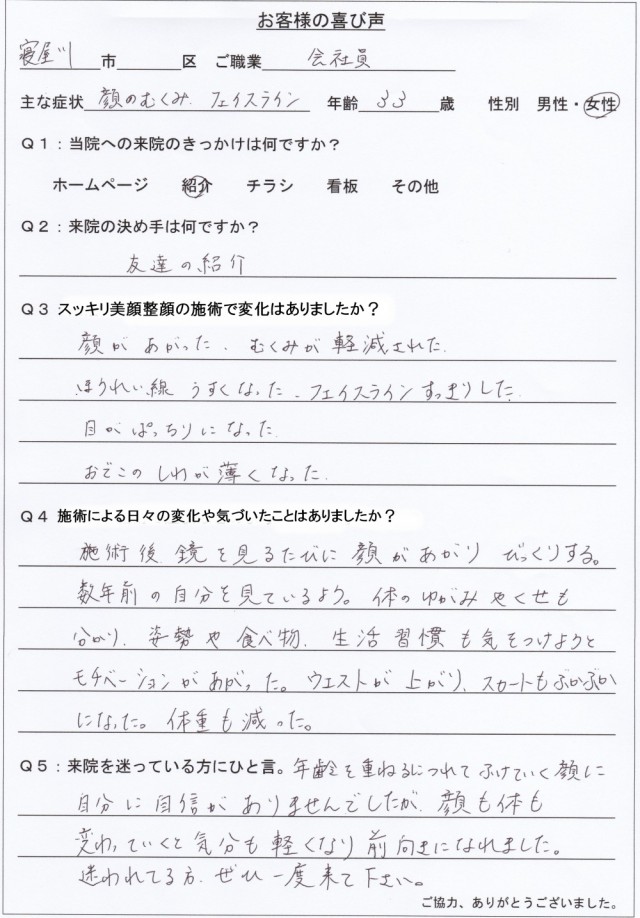 お客様の喜び声
寝屋川市 区 ご職業 会社員
主な症状 顔のむくみ. フェイスライン 年齢 33 歳 性別 男性・女性
Q1:当院への来院のきっかけは何ですか?
ホームページ 紹介 チラシ 看板 その他
Q2:来院の決め手は何ですか?
友達の紹介
Q3 スッキリ美顔整顔の施術で変化はありましたか?
顔があがった. むくみが軽減された.
ほうれい線 うすくなった. フェイスラインすっきりした.
目がぱっちりになった.
おでこのしわが薄くなった.
Q4 施術による日々の変化や気づいたことはありましたか?
施術後 鏡を見るたびに 顔があがり びっくりする。
数年前の自分を見ているよう。 体のゆがみやくせも
分かり. 姿勢や食べ物. 生活習慣も気をつけようと
モチベーションがあがった。 ウエストが上がり、スカートもぶかぶか
になった。 体重も減った。
Q5:来院を迷っている方にひと言。年齢を重ねるにつれてふけていく顔に
自分に自信がありませんでしたが. 顔も体も
変わっていくと気分も軽くなり前向きになれました。
迷われてる方. ぜひ一度来て下さい。
ご協力、ありがとうございました。